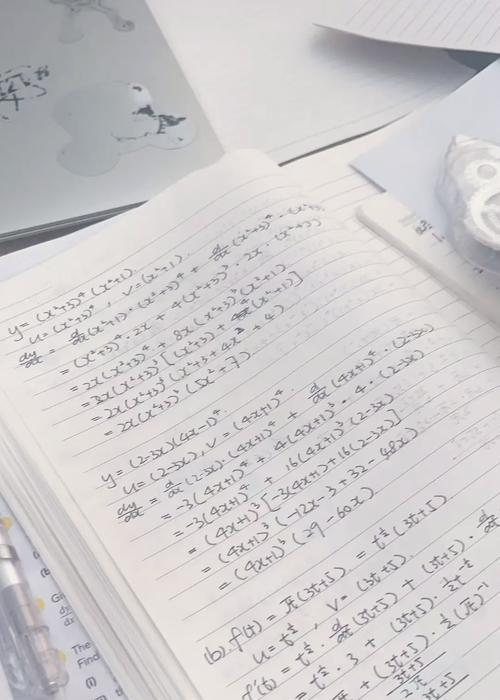 y = (x²+3)⁴ (x²+1).
u = (x²+3)⁴, v = (x²+1).
dy/dx = d/dx (x²+1) · (x²+3)⁴ + d/dx (x²+3)⁴ · (x²+1)
= (x²+3)⁴ · 2x + 4(x²+3)³ · 2x · (x²+1)
= 2x(x²+3)⁴ + 8x(x²+3)³(x²+1)
= 2x(x²+3)³ [(x²+3) + 4(x²+1)]
= 2x(x²+3)³ (x²+3+4x²+4)
= 2x(x²+3)³ (5x²+7)
y = (2-3x)(4x+1)⁴.
u = (2-3x), v = (4x+1)⁴.
dy/dx = d/dx (2-3x) · (4x+1)⁴ + d/dx (4x+1)⁴ · (2-3x)
= -3(4x+1)⁴ + 4(4x+1)³ · 4 · (2-3x)
= -3(4x+1)⁴ + 16(4x+1)³ (2-3x)
= (4x+1)³ [-3(4x+1) + 16(2-3x)]
= (4x+1)³ (-12x-3+32-48x)
= (4x+1)³ (29-60x)
(b). f(t) = √t (3t+5) = t^½ (3t+5)
u = t^½, v = (3t+5).
f'(t) = t^½ · d/dt (3t+5) + (3t+5) · d
= t^½ · 3 + (3t+5) · ½t^-½
+ (3t+5) · ½(√t)⁻¹
3t+5
3t+5
(
Gi
dy
dx
The
Find
(i)